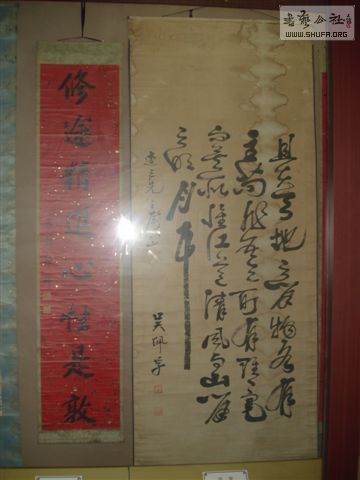 書藝公社
WWW.SHUFA.ORG
且夫天地之間物各有
主苟非吾之所有雖一毫
而莫取惟江上之清風与山間
之明月
先生
吳佩孚
修途精進心性是敦